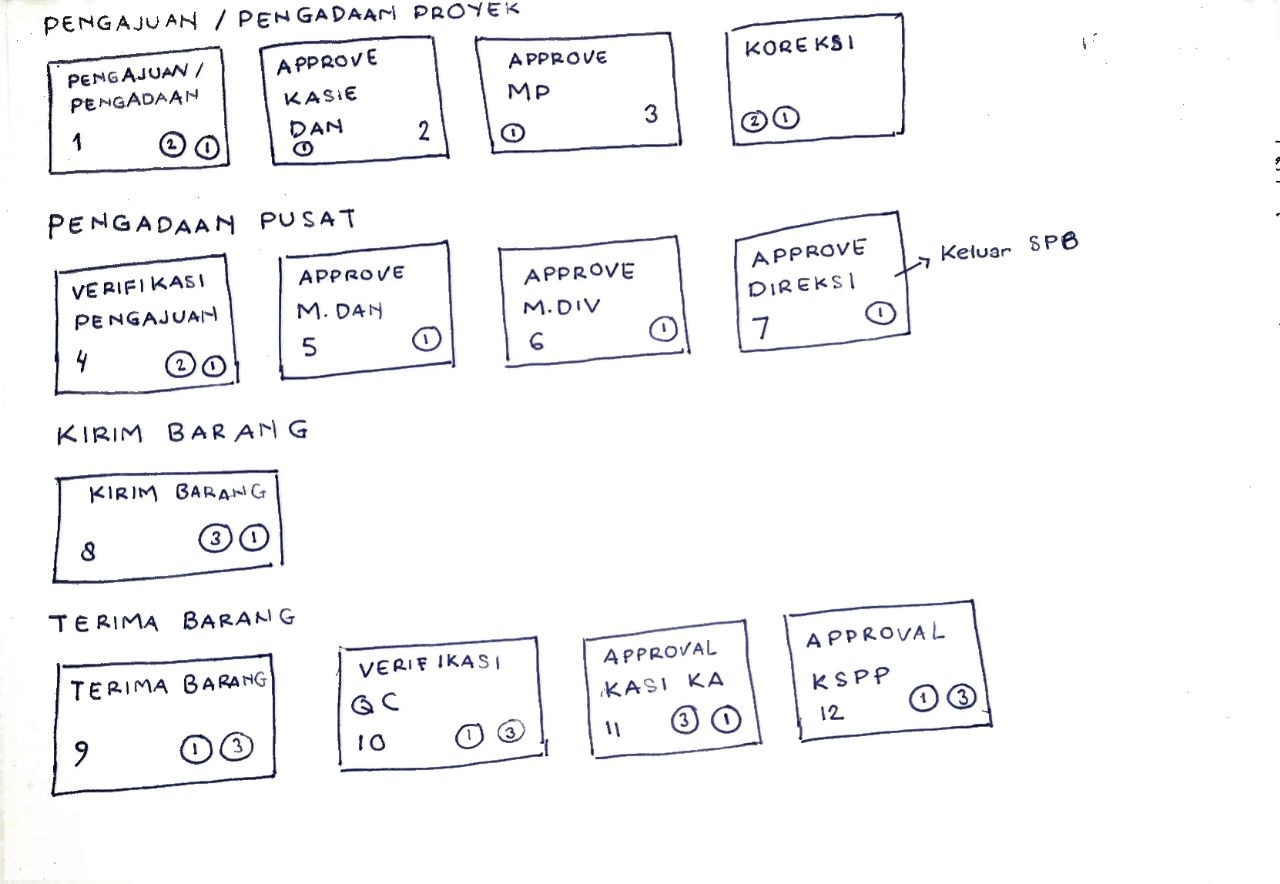 PENGAJUAN / PENGADAAN PROYEK
PENGAJUAN /
PENGADAAN
1 2 1
APPROVE
KASIE
DAN 2
1
APPROVE
MP
1 3
KOREKSI
2 1
PENGADAAN PUSAT
VERIFIKASI
PENGAJUAN
4 2 1
APPROVE
M. DAN
5 1
APPROVE
M. DIV
6 1
APPROVE
DIREKSI
7 1
Keluar SPB
KIRIM BARANG
KIRIM BARANG
8 3 1
TERIMA BARANG
TERIMA BARANG
9 1 3
VERIFIKASI
QC
10 1 3
APPROVAL
KASI KA
11 3 1
APPROVAL
KSPP
12 1 3